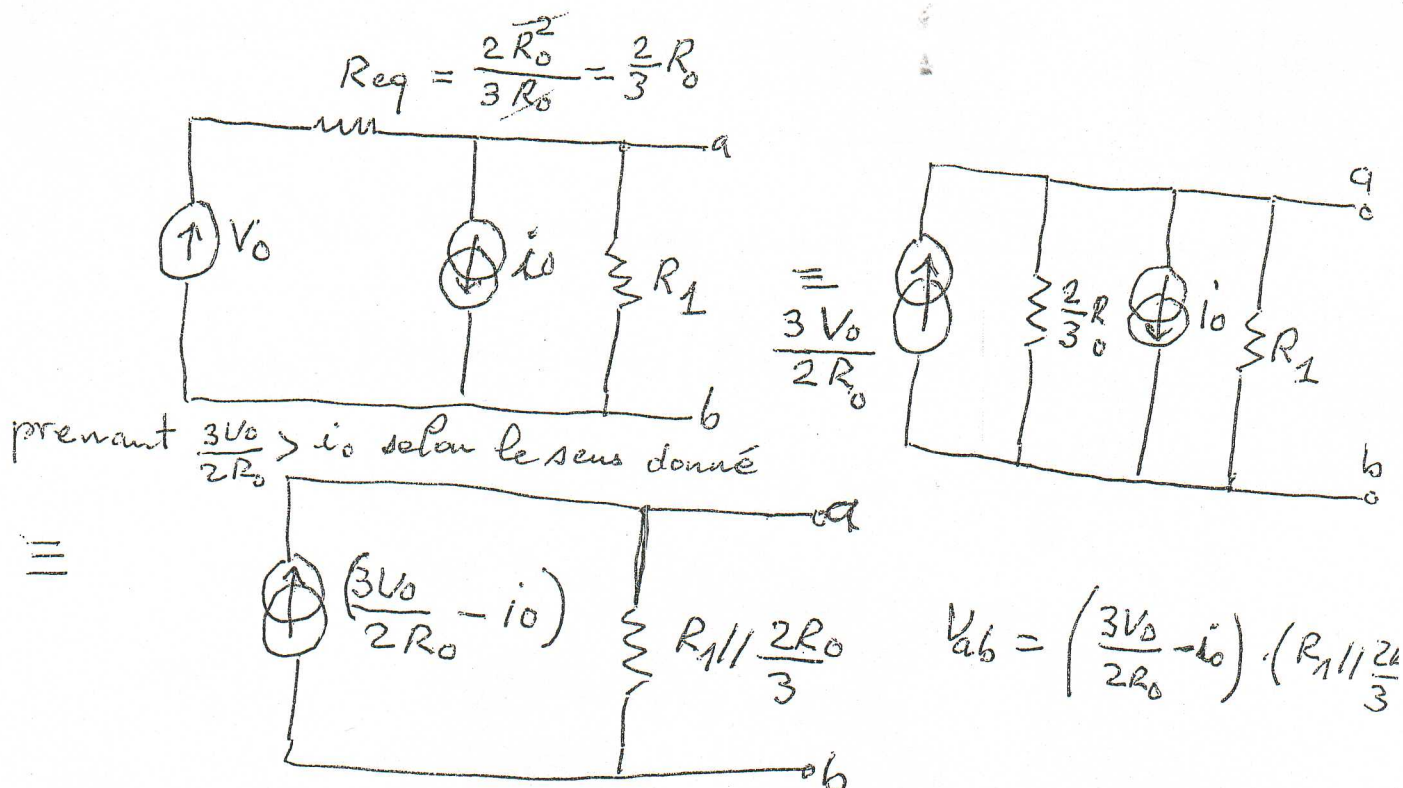 Req = 2R₀² / 3R₀ = 2/3 R₀
a
V₀
i₀
R₁
b
≡
3V₀ / 2R₀
2/3 R₀
i₀
R₁
a
b
prenant 3V₀/2R₀ > i₀ selon le sens donné
≡
(3V₀/2R₀ - i₀)
R₁ // 2R₀/3
a
b
Vab = (3V₀/2R₀ - i₀) . (R₁ // 2R/3